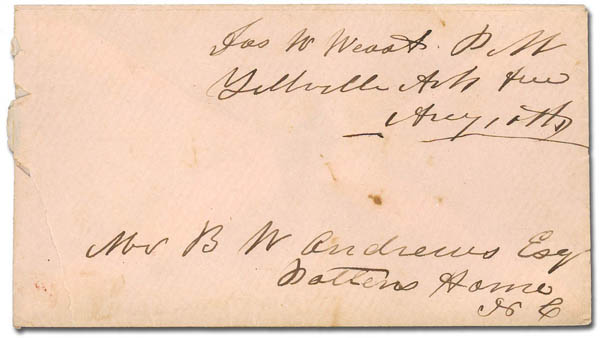 Jas W Weast. P. M
Yellville Ark free
Aug 10th
Mr B W Andrews Esq
Pattens Home
N C